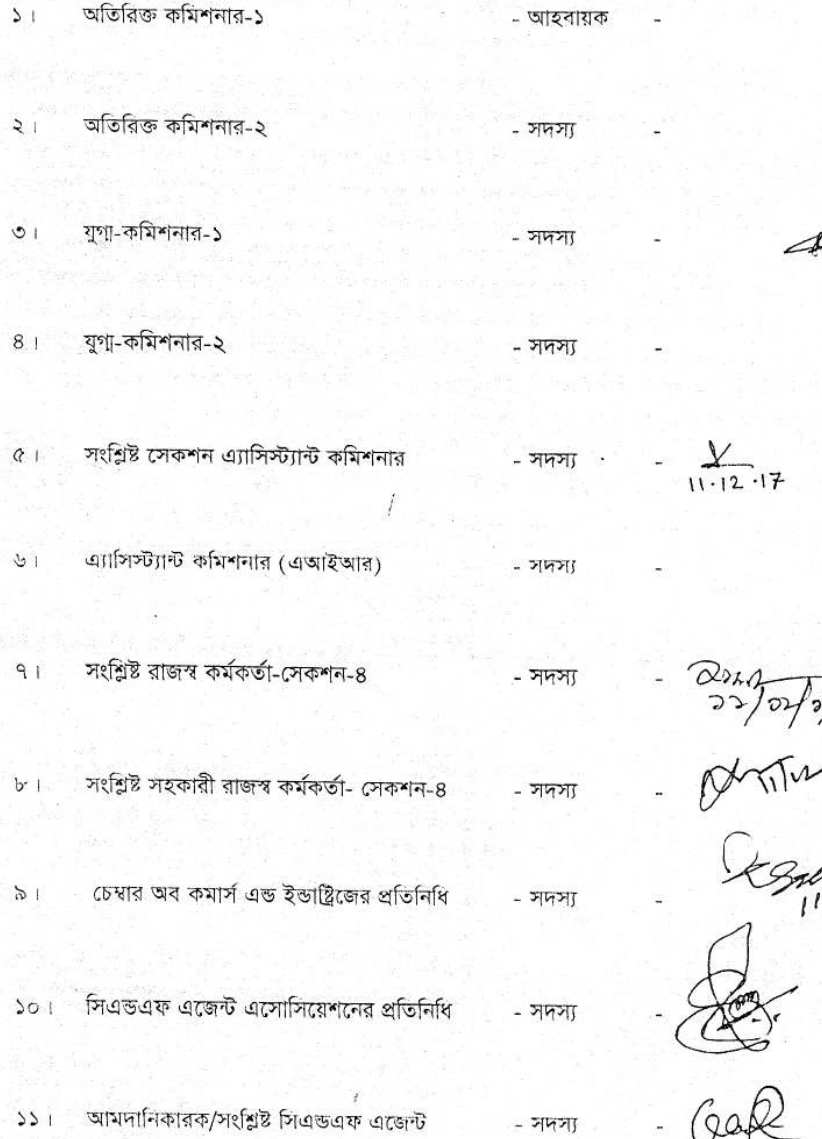 ১। অতিরিক্ত কমিশনার-১ - আহবায়ক -
২। অতিরিক্ত কমিশনার-২ - সদস্য -
৩। যুগ্ম-কমিশনার-১ - সদস্য -
৪। যুগ্ম-কমিশনার-২ - সদস্য -
৫। সংশ্লিষ্ট সেকশন এ্যাসিস্ট্যান্ট কমিশনার - সদস্য -
11.12.17
৬। এ্যাসিস্ট্যান্ট কমিশনার (এআইআর) - সদস্য -
৭। সংশ্লিষ্ট রাজস্ব কর্মকর্তা-সেকশন-৪ - সদস্য -
৮। সংশ্লিষ্ট সহকারী রাজস্ব কর্মকর্তা- সেকশন-৪ - সদস্য -
৯। চেম্বার অব কমার্স এন্ড ইন্ডাষ্ট্রিজের প্রতিনিধি - সদস্য -
১০। সিএন্ডএফ এজেন্ট এসোসিয়েশনের প্রতিনিধি - সদস্য -
১১। আমদানিকারক/সংশ্লিষ্ট সিএন্ডএফ এজেন্ট - সদস্য -